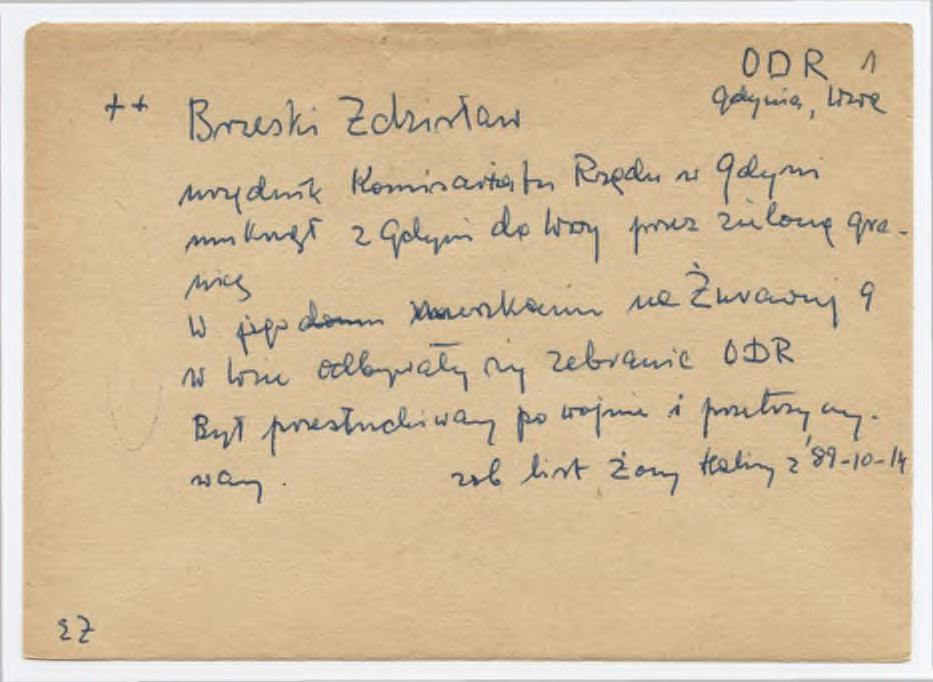 ODR 1
Gdynia, Wwa
++ Brzeski Zdzisław
urzędnik Komisariatu Rządu w Gdyni
umknął z Gdyni do Wwy przez zieloną gra-
nicę
W jego domu mieszkaniu na Żurawiej 9
w Wwie odbywały się zebrania ODR
Był przesłuchiwany po wojnie i przetrzymy-
wany. zob list żony Haliny z '89-10-14
EZ